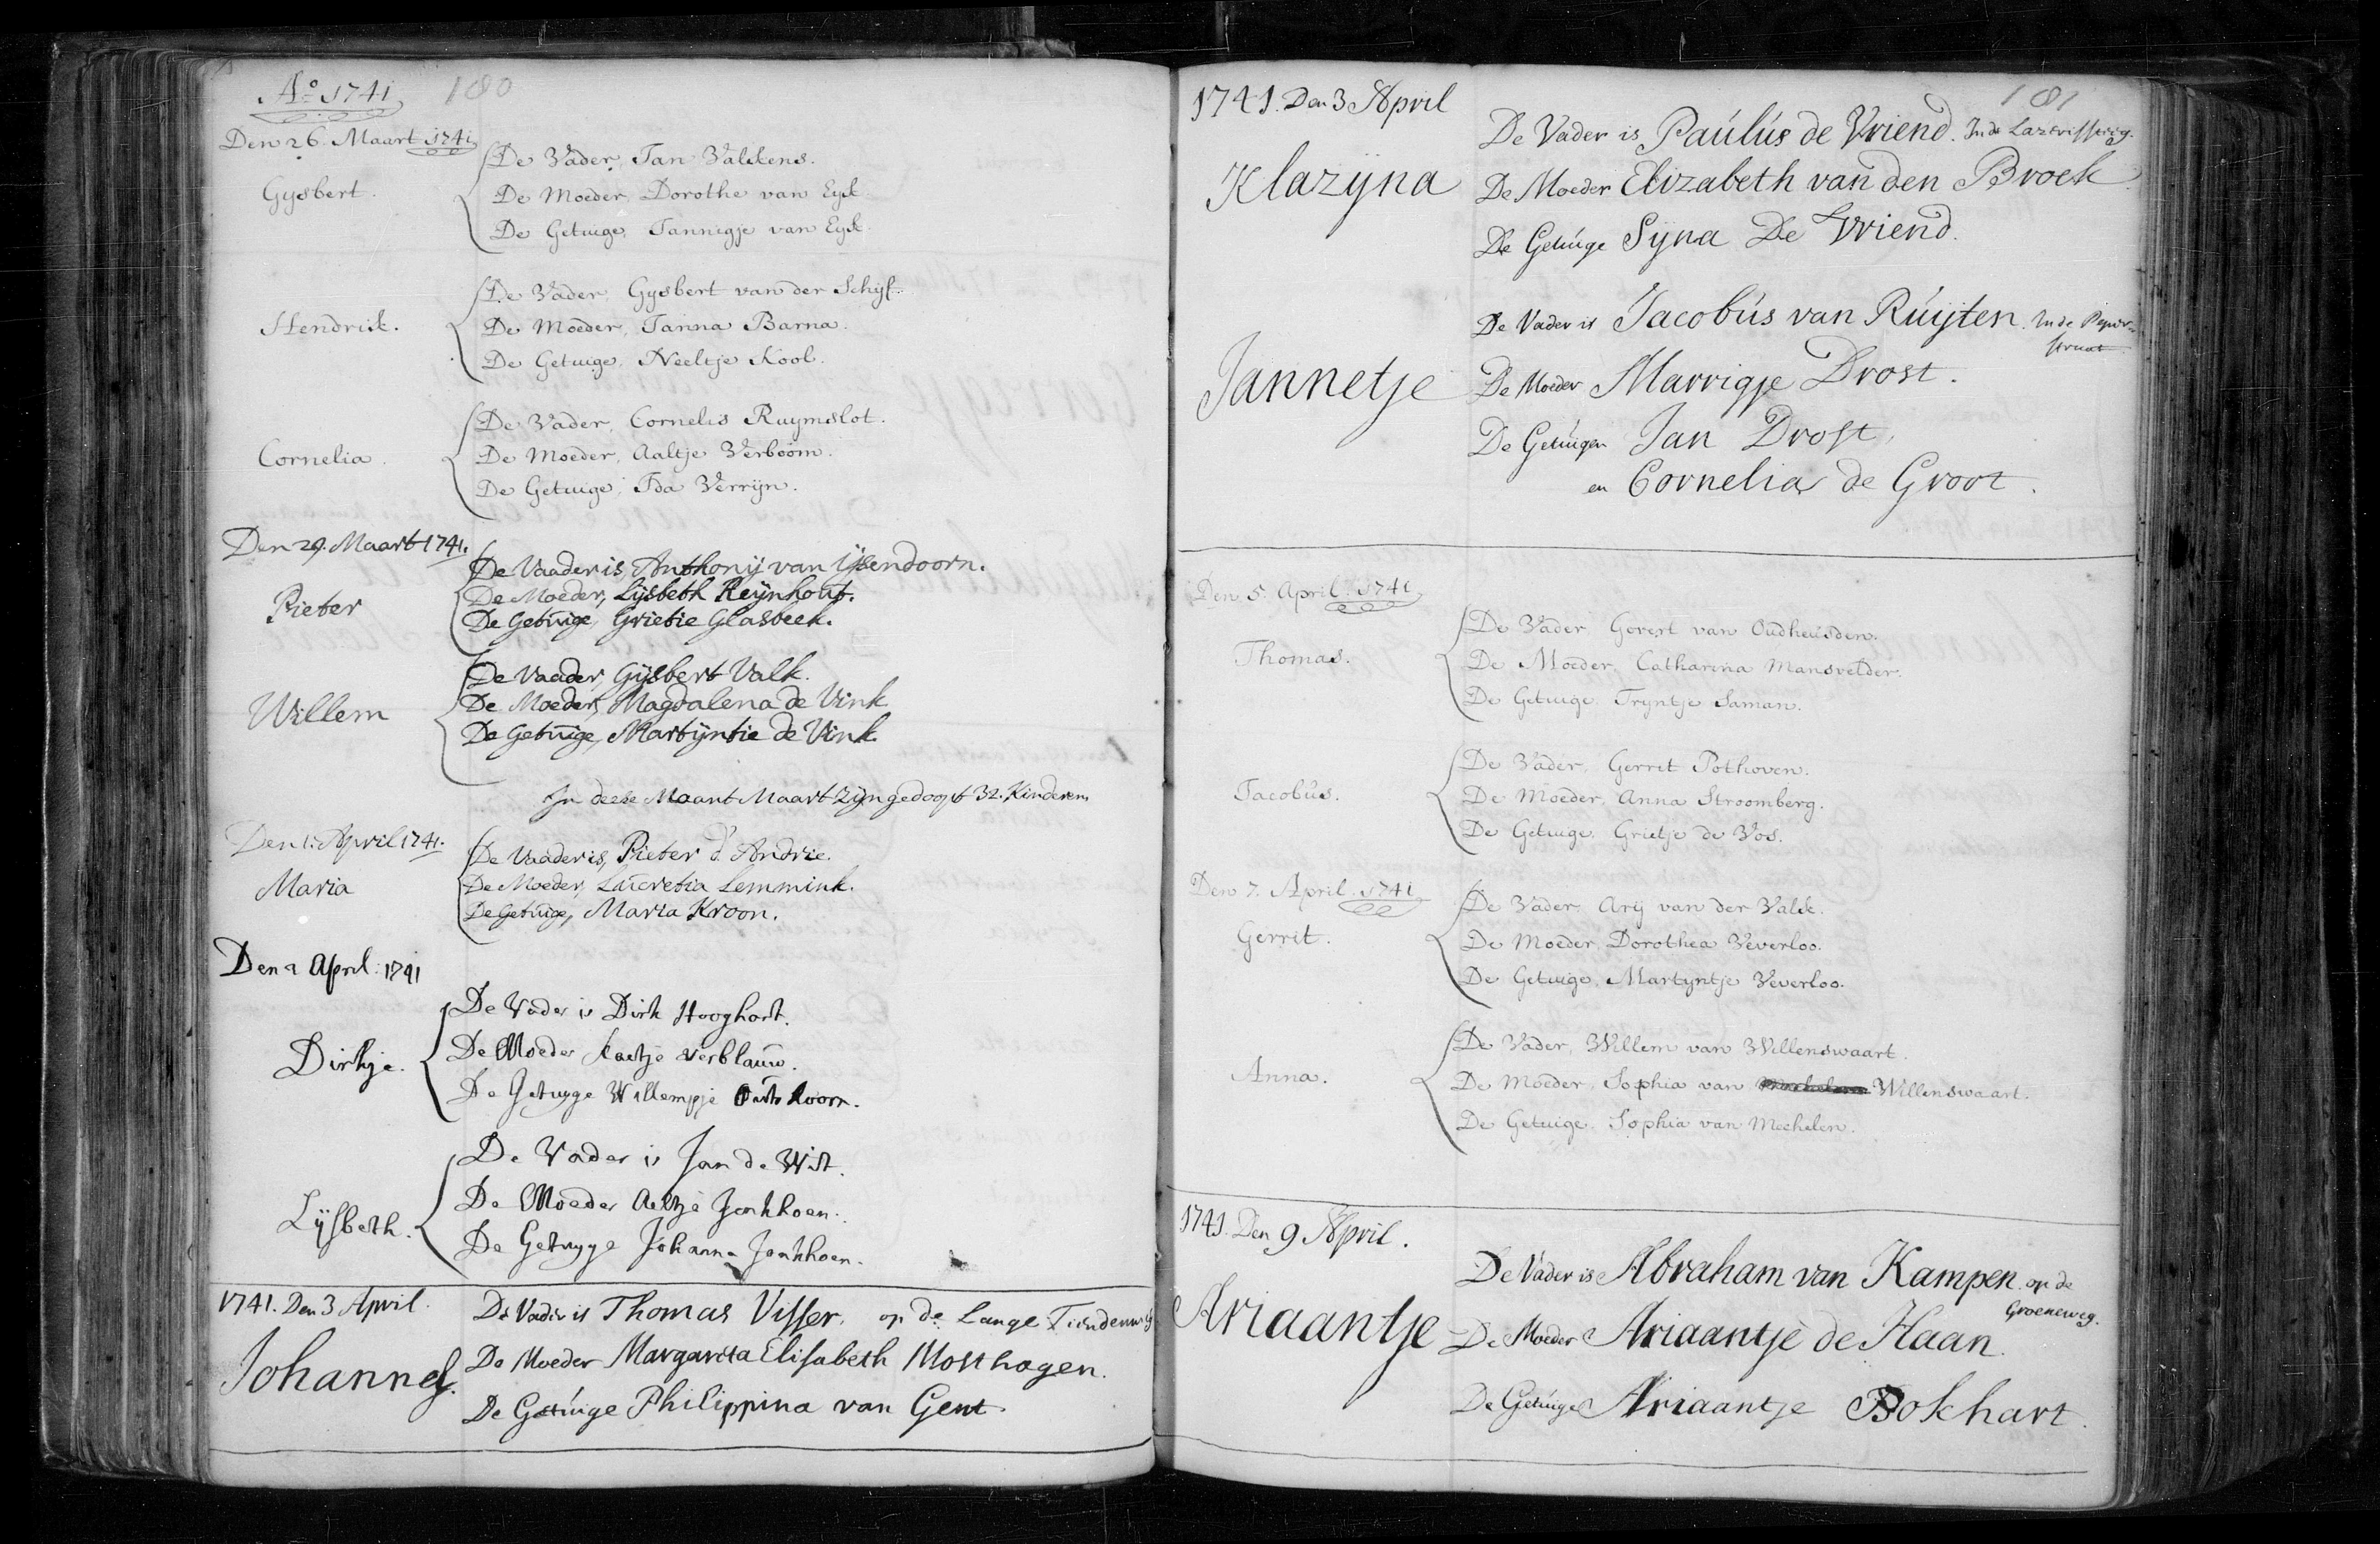 Aº 1741 180
Den 26. Maart 1741
Gysbert.
De Vader, Jan Valckens.
De Moeder, Dorothe van Eyck.
De Getuige, Jannigje van Eyck.
Hendrick.
De Vader, Gysbert van der Schijf.
De Moeder, Janna Barna.
De Getuige, Neeltje Kool.
Cornelia.
De Vader, Cornelis Ruymslot.
De Moeder, Aaltje Verboom.
De Getuige, Ida Verrijn.
Den 29. Maart 1741.
Pieter
De Vaader is, Anthonij van Ijsendoorn.
De Moeder, Lijsbeth Reijnhout.
De Getuige, Grietie Glasbeek.
Willem
De Vaader, Gijsbert Valk.
De Moeder, Magdalena de Vink
De Getuige, Martijntie de Vink.
In deese Maant Maart zijn gedoopt 32. Kinderen
Den 1. April 1741.
Maria
De Vaader is, Pieter d' Andrie.
De Moeder, Lucretia Lemmink.
De Getuige, Maria Kroon.
Den 2 April: 1741
Dirkje.
De Vader is Dirk Hooghart.
De Moeder Kaetje verblauw.
De Getuyge Willempje
Lijsbeth.
De Vader is Jan de Wit.
De Moeder Aeltje Jonkhoen.
De Getuyge Johanna Jonkhoen.
1741. Den 3 April.
Johannes.
De Vader is Thomas Visser, op de Lange Tiendeweg
De Moeder Margareta Elisabeth Mosthagen.
De Getuige Philippina van Gent
181
1741. Den 3 April
Klazijna
De Vader is Paulus de Vriend. In de Lazerissteeg.
De Moeder Elizabeth van den Broek
De Getuige Sijna De Vriend.
Jannetje
De Vader is Jacobus van Ruijten. In de Peper-
straat
De Moeder Marrigje Drost.
De Getuigen Jan Drost,
en Cornelia de Groot.
Den 5. April. 1741
Thomas.
De Vader, Govert van Oudheusden.
De Moeder, Catharina Mansvelder.
De Getuige, Tryntje Saman.
Jacobus.
De Vader, Gerrit Pothoven.
De Moeder, Anna Stroomberg.
De Getuige, Grietje de Vos.
Den 7. April. 1741
Gerrit.
De Vader, Arij van der Valck.
De Moeder, Dorothea Veverloo.
De Getuige, Martyntje Veverloo.
Anna.
De Vader, Willem van Willenswaart.
De Moeder, Sophia van Willenswaart.
De Getuige, Sophia van Mechelen.
1741. Den 9 April.
Ariaantje
De Vader is Abraham van Kampen. op de
Groeneweg.
De Moeder Ariaantje de Haan.
De Getuige Ariaantje Bokhart.